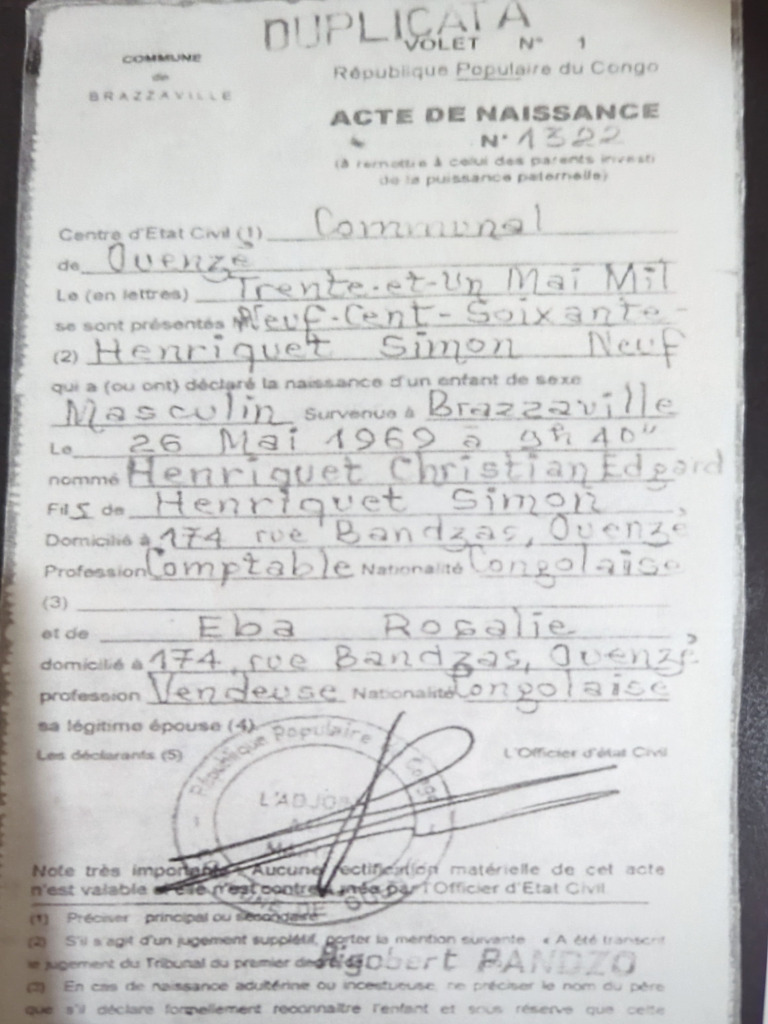 DUPLICATA
VOLET N° 1
COMMUNE
de
BRAZZAVILLE
République Populaire du Congo
ACTE DE NAISSANCE
N° 1322
(à remettre à celui des parents investi
de la puissance paternelle)
Centre d'Etat Civil (1) Communal
de Ouenzé
Le (en lettres) Trente-et-Un Mai Mil
se sont présentés Neuf-Cent-Soixante-
(2) Henriquet Simon Neuf
qui a (ou ont) déclaré la naissance d'un enfant de sexe
Masculin Survenue à Brazzaville
Le 26 Mai 1969 à 9h 40"
nommé Henriquet Christian Edgard
Fils de Henriquet Simon
Domicilié à 174 rue Bandzas, Ouenzé
Profession Comptable Nationalité Congolaise
(3)
et de Eba Rosalie
domicilié à 174, rue Bandzas, Ouenzé
profession Vendeuse Nationalité Congolaise
sa légitime épouse (4)
Les déclarants (5) L'Officier d'état Civil
République Populaire Congo
L'ADJOINT
Note très importante Aucune rectification matérielle de cet acte
n'est valable si elle n'est contresignée par l'Officier d'Etat Civil
(1) Préciser principal ou secondaire
(2) S'il s'agit d'un jugement supplétif, porter la mention suivante « A été transcrit
le jugement du Tribunal du premier
Rigobert BANDZO
(3) En cas de naissance adultérine ou incestueuse, ne préciser le nom du père
que s'il déclare formellement reconnaître l'enfant et sous réserve que cette